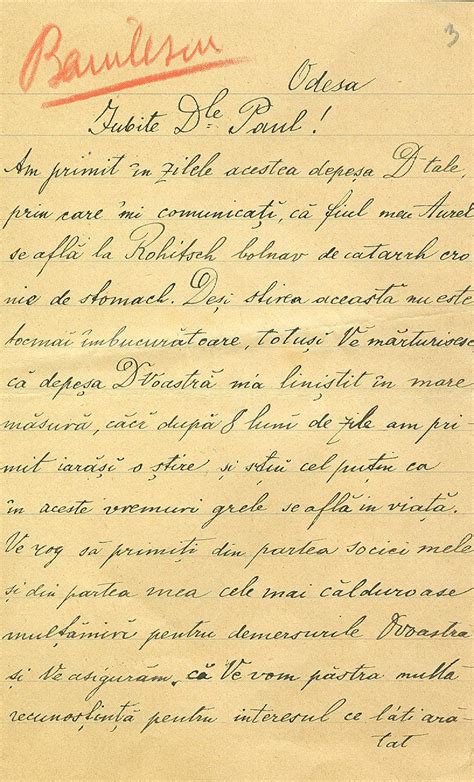 Banilescu
3
Odesa
Iubite Dle Paul!
Am primit în zilele acestea depeșa D tale,
prin care 'mi comunicați, că fiul meu Aurel
se află la Rohitsch bolnav de catarrh cro
nic de stomach. Deși știrea aceasta nu este
tocmai îmbucurătoare, totuși Vĕ mărturisesc
că depeșa DVoastră m'a liniștit în mare
măsură, căci după 8 luni de zile am pri
mit iarăși o știre, și știu cel puțin ca
în aceste vremuri grele se află in viață.
Ve rog să primiți din partea sociei mele
și din partea mea cele mai călduroase
mulțămiri pentru demersurile DVoastra
și Ve asigurăm, că Ve vom păstra multa
recunoștință pentru interesul ce l'ați ară
tat